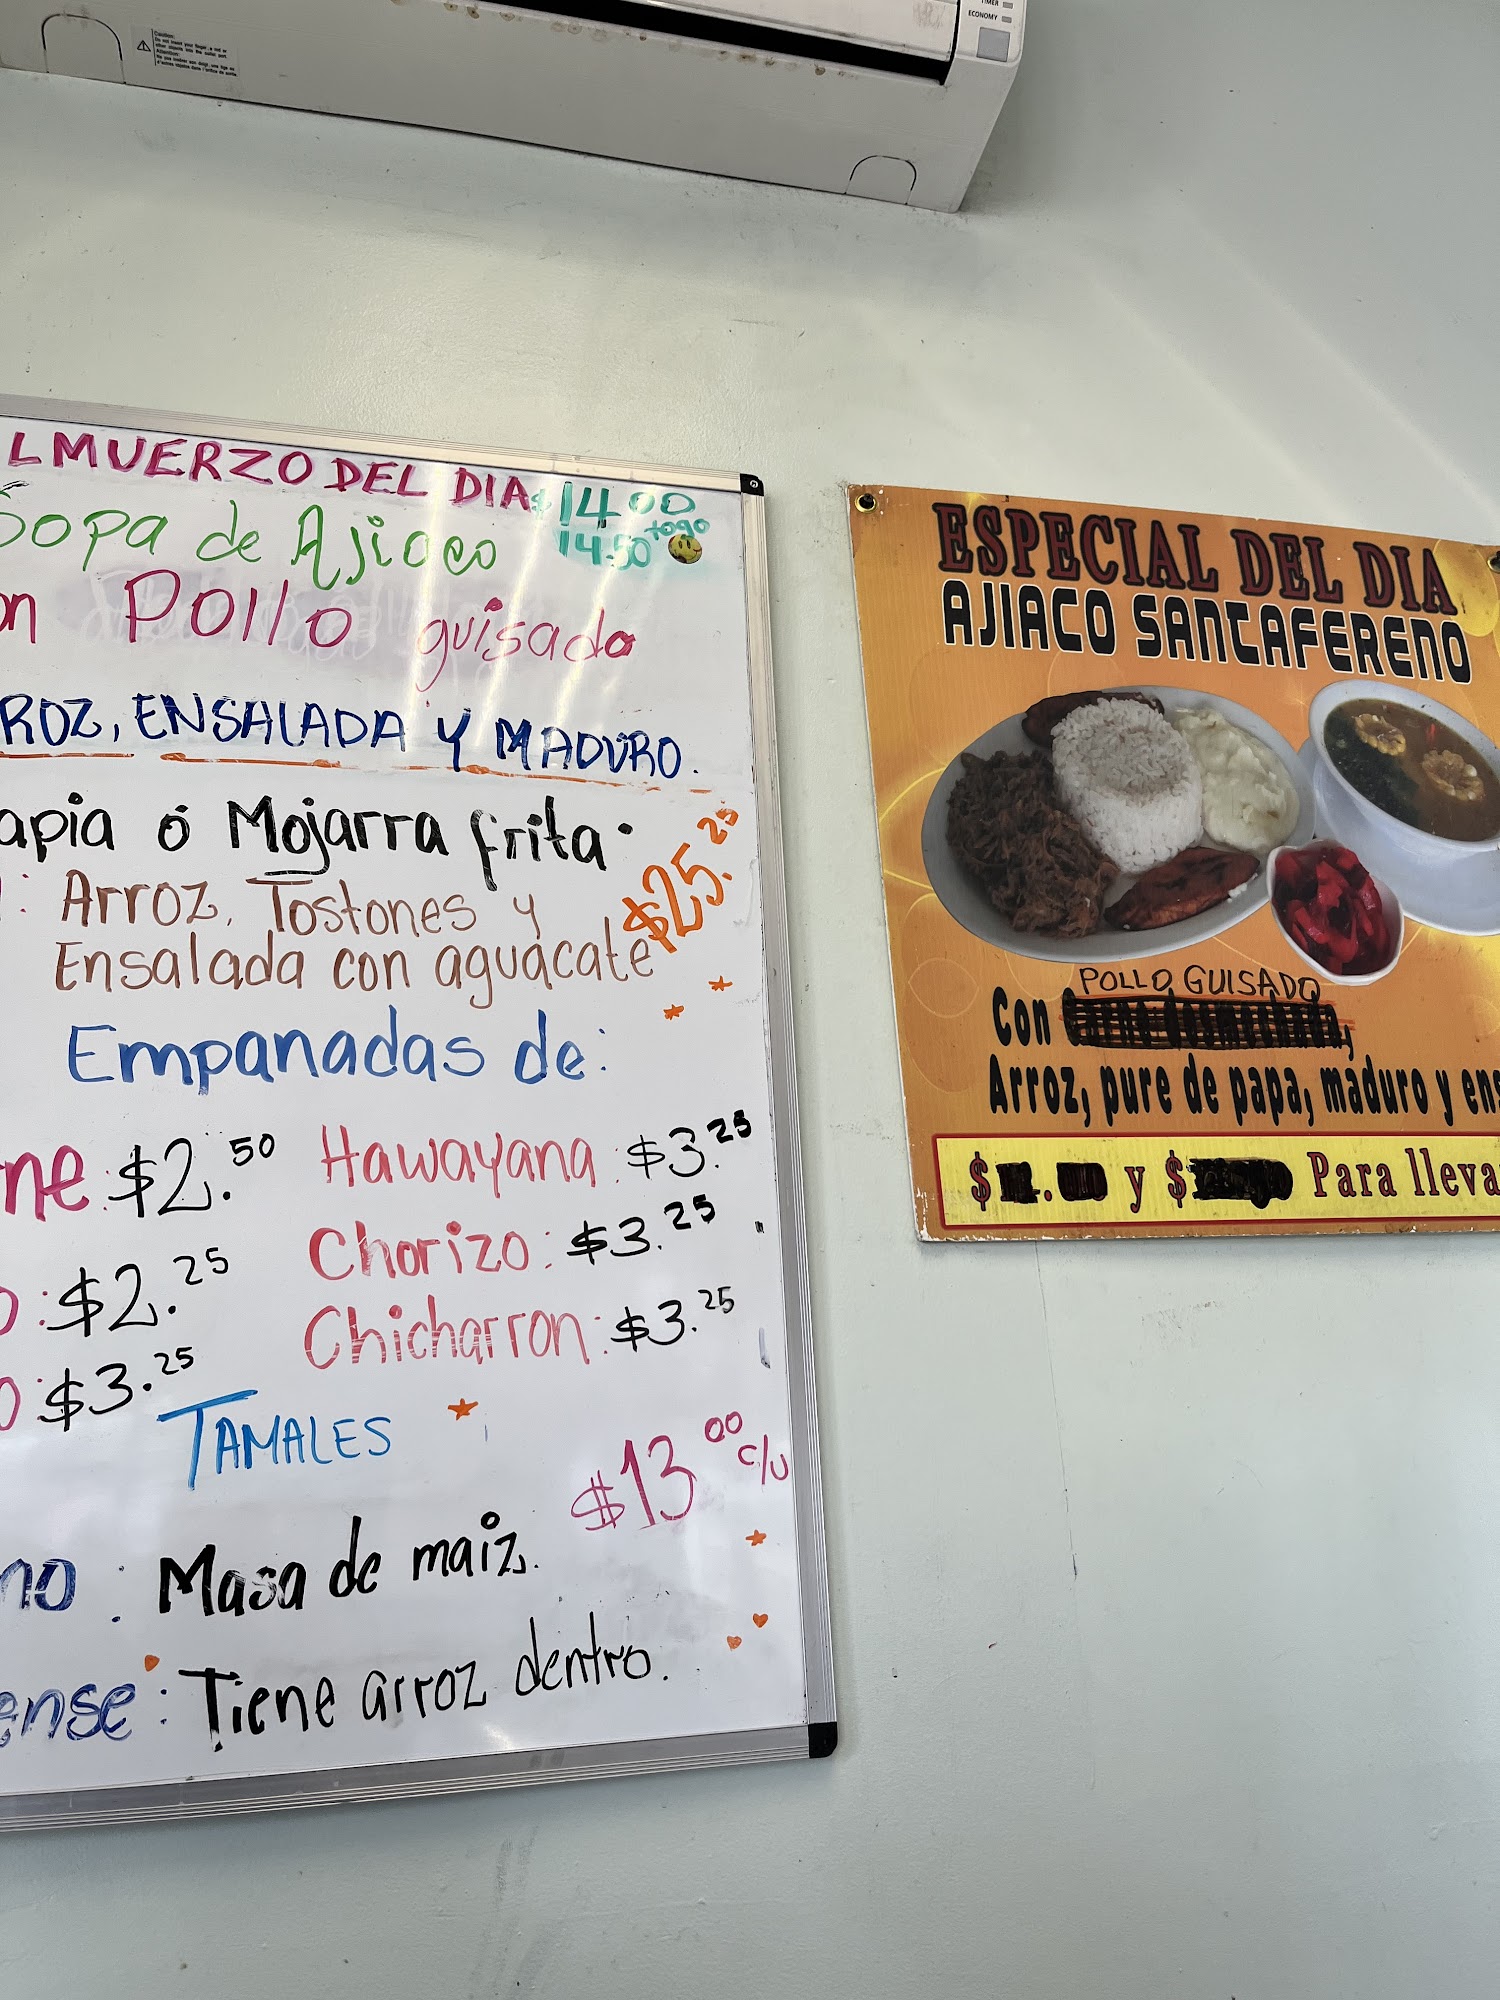 TIMER
ECONOMY
Caution:
LMUERZO DEL DIA $14.00
Sopa de Ajiaco 14.50 togo
on Pollo guisado
ROZ, ENSALADA Y MADURO.
apia ó Mojarra frita. $25.25
: Arroz, Tostones y
Ensalada con aguacate
Empanadas de:
ne: $2.50 Hawayana: $3.25
o: $2.25 Chorizo: $3.25
o: $3.25 Chicharron: $3.25
TAMALES
$13.00 c/u
no: Masa de maiz.
ense: Tiene arroz dentro.
ESPECIAL DEL DIA
AJIACO SANTAFERENO
POLLO GUISADO
Con Carne desmechada,
Arroz, pure de papa, maduro y ens
$ . y $ Para lleva